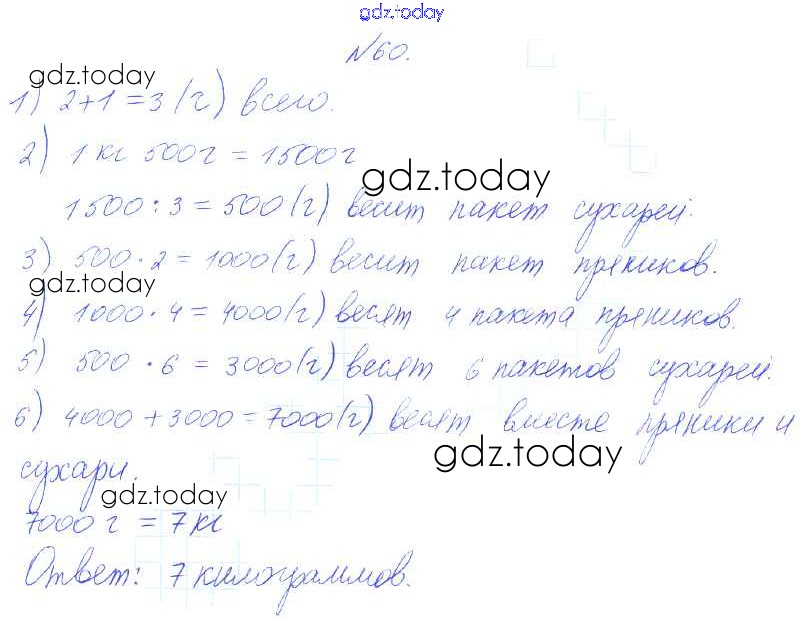 gdz.today
№60.
gdz.today
1) 2+1=3 (г) всего.
2) 1 кг 500г = 1500г
gdz.today
1500:3=500(г) весит пакет сухарей.
3) 500·2=1000(г) весит пакет пряников.
gdz.today
4) 1000·4=4000(г) весят 4 пакета пряников.
5) 500·6=3000(г) весят 6 пакетов сухарей.
6) 4000+3000=7000(г) весят вместе пряники и
gdz.today
сухари.
gdz.today
7000 г = 7 кг
Ответ: 7 килограммов.